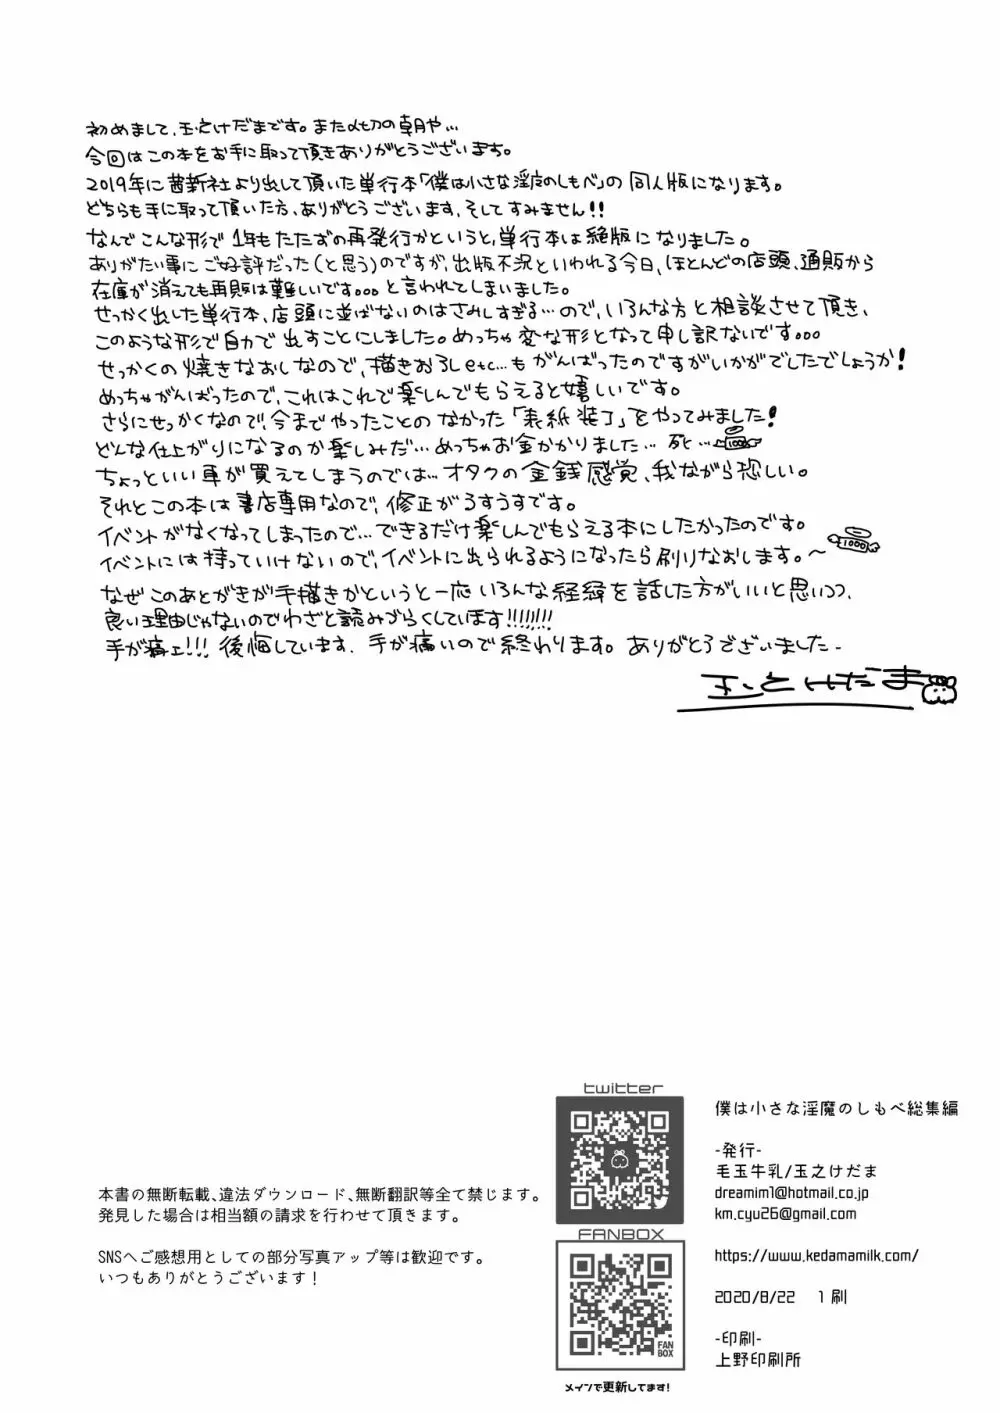 初めまして、玉之けだまです。また〆切の朝や…
今回はこの本をお手に取って頂きありがとうございます。
2019年に茜新社より出して頂いた単行本「僕は小さな淫魔のしもべ」の同人版になります。
どちらも手に取って頂いた方、ありがとうございます、そしてすみません!!
なんでこんな形で1年もたたずの再発行かというと、単行本は絶版になりました。
ありがたい事にご好評だった(と思う)のですが、出版不況といわれる今日、ほとんどの店頭、通販から
在庫が消えても再販は難しいです。。。と言われてしまいました。
せっかく出した単行本、店頭に並ばないのはさみしすぎる…ので、いろんな方と相談させて頂き、
このような形で自力で出すことにしました。めっちゃ変な形となって申し訳ないです。。。
せっかくの焼きなおしなので、描きおろしetc…もがんばったのですがいかがでしたでしょうか!
めっちゃがんばったので、これはこれで楽しんでもらえると嬉しいです。
さらにせっかくなので、今までやったことのなかった「表紙装丁」をやってみました!
どんな仕上がりになるのか楽しみだ…めっちゃお金かかりました…死…1000
ちょっといい車が買えてしまうのでは…オタクの金銭感覚、我ながら恐しい。
それとこの本は書店専用なので、修正がうすうすです。
イベントがなくなってしまったので…できるだけ楽しんでもらえる本にしたかったのです。
イベントには持っていけないので、イベントに出られるようになったら刷りなおします。~1000
なぜこのあとがきが手描きかというと一応いろんな経緯を話した方がいいと思いつつ、
良い理由じゃないのでわざと読みづらくしています!!!!!!!
手が痛ェ!!!後悔しています、手が痛いので終わります。ありがとうございました-
玉之けだま
twitter
FANBOX
FAN
BOX
メインで更新してます!
本書の無断転載、違法ダウンロード、無断翻訳等全て禁じます。
発見した場合は相当額の請求を行わせて頂きます。
SNSへご感想用としての部分写真アップ等は歓迎です。
いつもありがとうございます!
僕は小さな淫魔のしもべ総集編
-発行-
毛玉牛乳/玉之けだま
dreamim1@hotmail.co.jp
km.cyu26@gmail.com
https://www.kedamamilk.com/
2020/8/22 1刷
-印刷-
上野印刷所